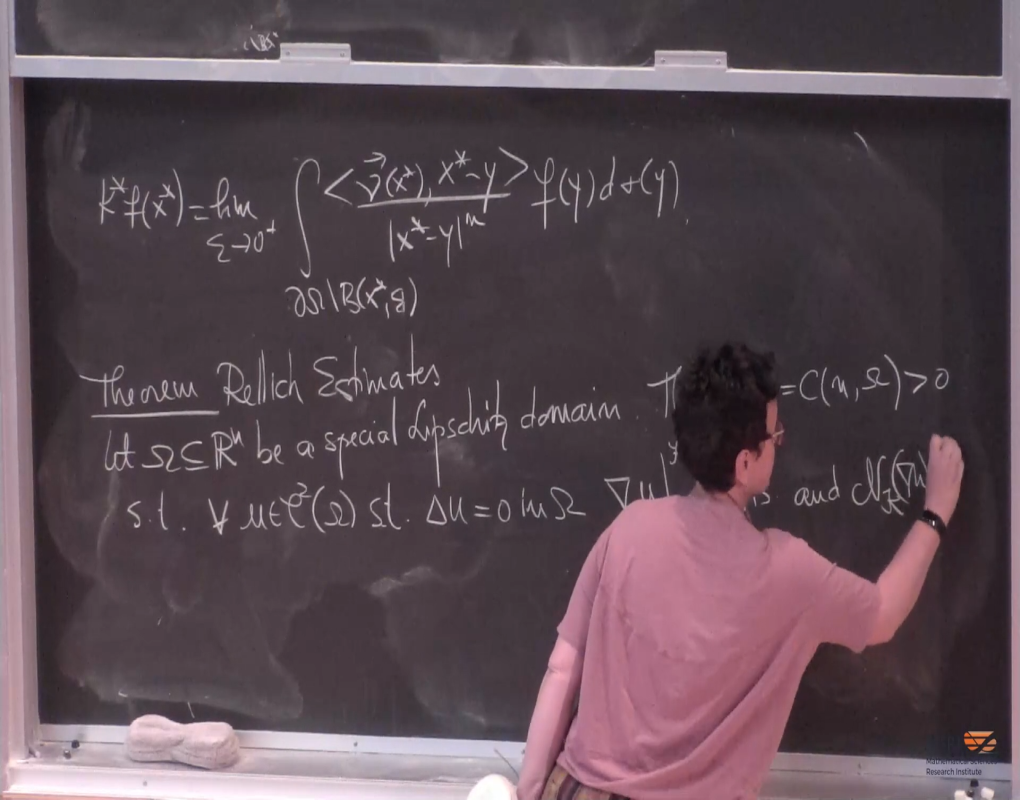 K*f(x*) = lim_{ε→0⁺} ∫_{∂Ω\B(x*,ε)} <ν⃗(x*), x*-y> / |x*-y|ⁿ f(y)dσ(y)
Theorem Rellich Estimates
Let Ω⊆ℝⁿ be a special Lipschitz domain. = C(n,Ω)>0
s.t. ∀ u∈C²(Ω) s.t. Δu=0 in Ω ∇u| and N_κ(∇u)
Research Institute